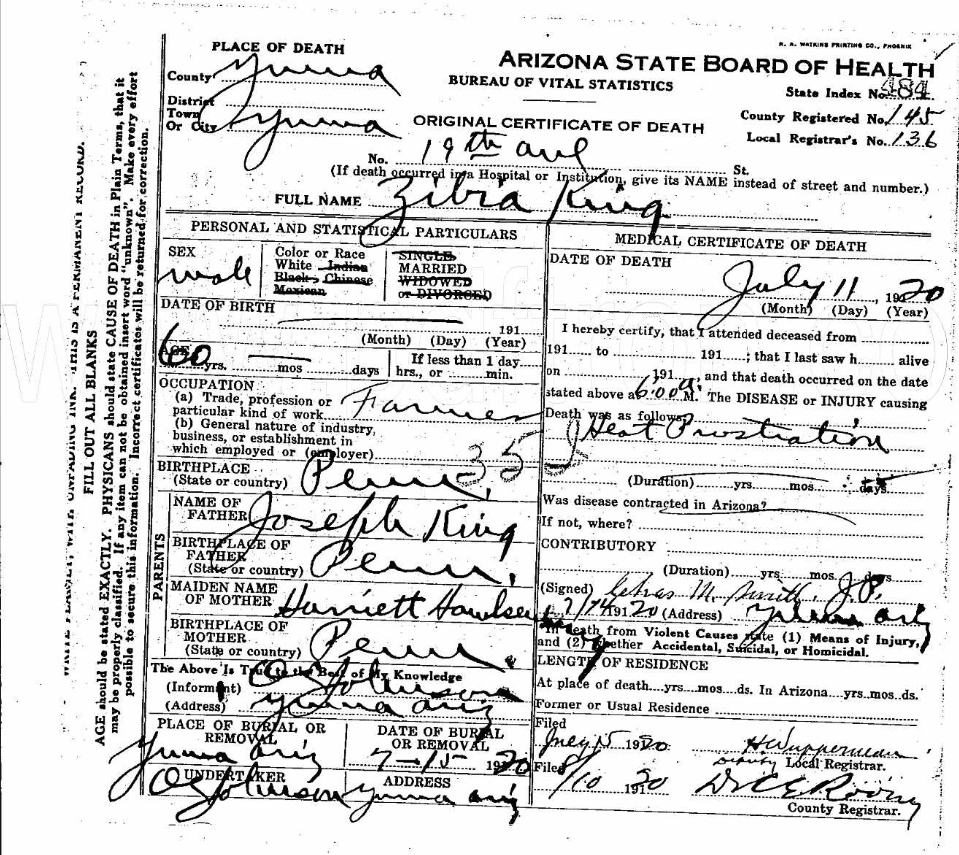 R. A. WATKINS PRINTING CO., PHOENIX
PLACE OF DEATH
ARIZONA STATE BOARD OF HEALTH
County Yuma
BUREAU OF VITAL STATISTICS
State Index No. 484
District
Town
Or City Yuma
ORIGINAL CERTIFICATE OF DEATH
County Registered No. 145
Local Registrar's No. 136
No. 19th ave St.
(If death occurred in a Hospital or Institution, give its NAME instead of street and number.)
FULL NAME Zibia King
PERSONAL AND STATISTICAL PARTICULARS
SEX
male
Color or Race
White Indian
Black, Chinese
Mexican
SINGLE
MARRIED
WIDOWED
or DIVORCED
DATE OF BIRTH
191
(Month) (Day) (Year)
AGE
60 yrs. mos days
If less than 1 day
hrs., or min.
OCCUPATION
(a) Trade, profession or
particular kind of work Farmer
(b) General nature of industry,
business, or establishment in
which employed or (employer)
355
BIRTHPLACE
(State or country) Penn.
PARENTS
NAME OF
FATHER Joseph King
BIRTHPLACE OF
FATHER
(State or country) Penn.
MAIDEN NAME
OF MOTHER Harriett
BIRTHPLACE OF
MOTHER
(State or country) Penn.
The Above Is True to the Best of My Knowledge
(Informant) O Johnson
(Address) Yuma Ariz
PLACE OF BURIAL OR
REMOVAL
Yuma Ariz
DATE OF BURIAL
OR REMOVAL
7-15 1920
UNDERTAKER
O Johnson
ADDRESS
Yuma Ariz
MEDICAL CERTIFICATE OF DEATH
DATE OF DEATH
July 11, 1920
(Month) (Day) (Year)
I hereby certify, that I attended deceased from
191 to 191; that I last saw h alive
on 191 and that death occurred on the date
stated above at 6:00 a. M. The DISEASE or INJURY causing
Death was as follows:
Heat Prostration
(Duration) yrs mos days
Was disease contracted in Arizona?
If not, where?
CONTRIBUTORY
(Duration) yrs. mos. days
(Signed) M. Smith. J.P.
7/14 1920 (Address) Yuma Ariz
In death from Violent Causes state (1) Means of Injury,
and (2) Whether Accidental, Suicidal, or Homicidal.
LENGTH OF RESIDENCE
At place of death yrs mos ds. In Arizona yrs mos ds.
Former or Usual Residence
Filed
July 15 1920
Deputy Local Registrar.
Filed
8/10 1920
County Registrar.
WITH UNFADING INK. THIS IS A PERMANENT RECORD.
FILL OUT ALL BLANKS
AGE should be stated EXACTLY. PHYSICANS should state CAUSE OF DEATH in Plain Terms, that it
may be properly classified. If any item can not be obtained insert word "unknown". Make every effort
possible to secure this information. Incorrect certificates will be returned for correction.